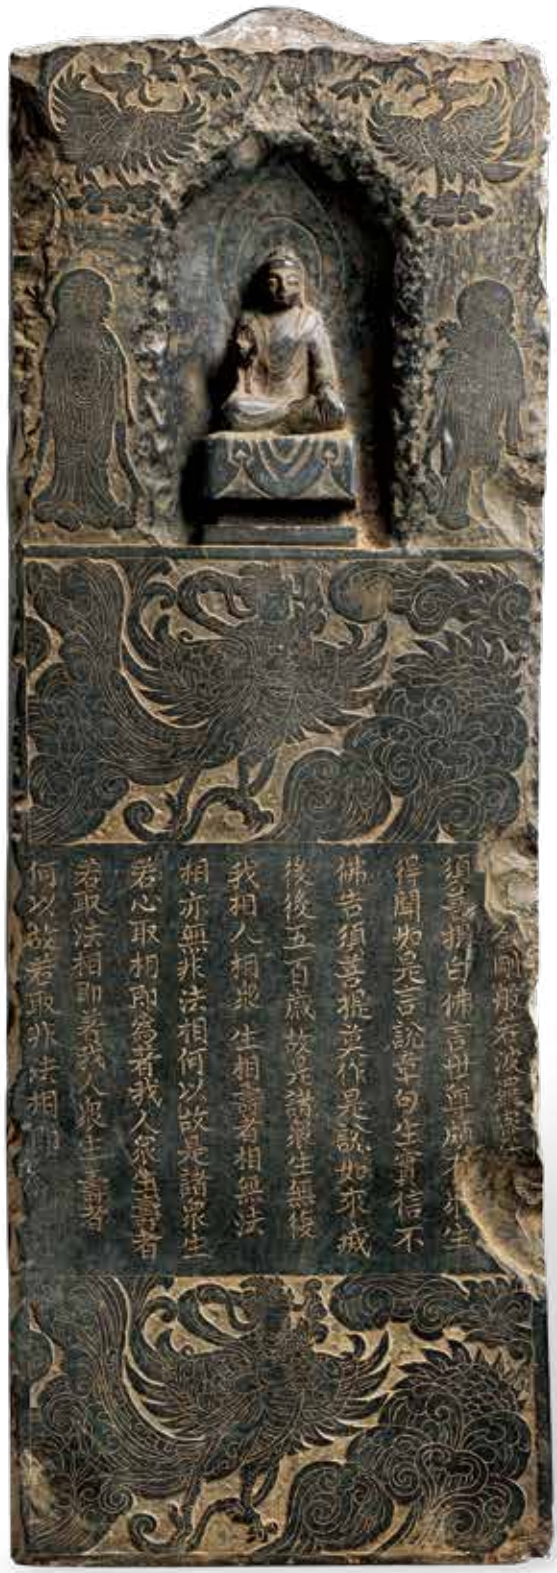 金剛般若波羅蜜
須菩提白佛言世尊頗有衆生
得聞如是言說章句生實信不
佛告須菩提莫作是說如來滅
後後五百歲故是諸衆生無復
我相人相衆生相壽者相無法
相亦無非法相何以故是諸衆生
若心取相即爲著我人衆生壽者
若取法相即著我人衆生壽者
何以故若取非法相即